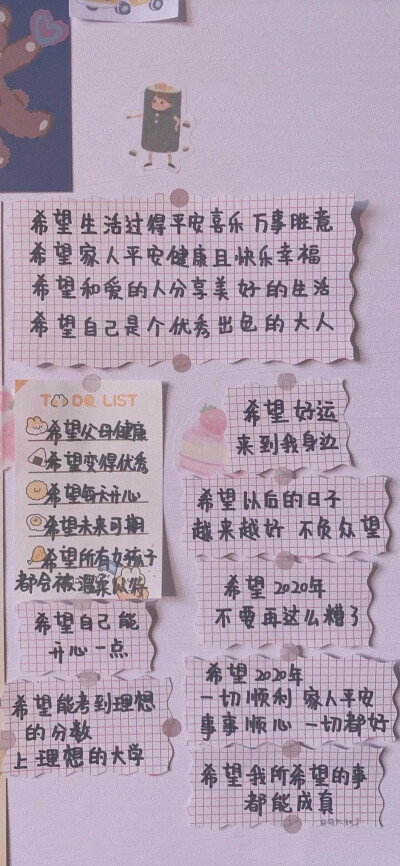 希望生活过得平安喜乐 万事胜意
希望家人平安健康且快乐幸福
希望和爱的人分享美好的生活
希望自己是个优秀出包的大人
TO DO LIST
希望父母健康
希望变得优秀
希望每天开心
希望未来可期
希望所有女孩子
都会被温柔以待
希望自己能
开心一点
希望能考到理想
的分数
上理想的大学
希望好运
来到我身边
希望以后的日子
越来越好 不负众望
希望2020年
不要再这么糟了
希望2020年
一切顺利 家人平安
事事顺心 一切都好
希望我所希望的事
都能成真